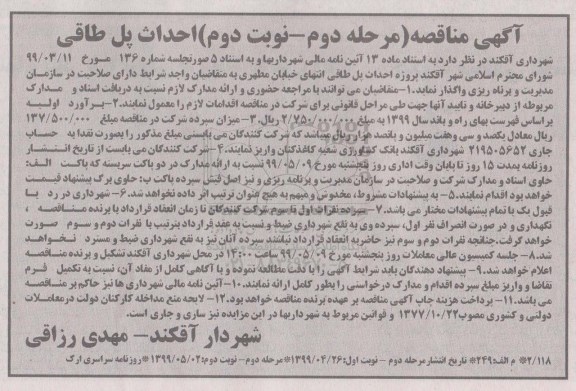 آگهی مناقصه(مرحله دوم-نوبت دوم)احداث پل طاقی
شهرداری آقکند در نظر دارد به استناد ماده ۱۳ آئین نامه مالی شهرداریها و به استناد ۵ صورتجلسه شماره ۱۳۶ مورخ ۹۹/۰۳/۱۱
شورای محترم اسلامی شهر آقکند پروژه احداث پل طاقی انتهای خیابان مطهری به متقاضیان واجد شرایط دارای صلاحیت در سازمان
مدیریت و برنامه ریزی واگذار نماید.۱-متقاضیان می توانند با مراجعه حضوری و ارائه مدارک لازم نسبت به دریافت اسناد و مدارک
مربوطه از دبیرخانه و تایید آنها جهت طی مراحل قانونی برای شرکت در مناقصه اقدامات لازم را معمول نمایند.۲-برآورد اولیه
بر اساس فهرست بهای راه و باند سال ۱۳۹۹ به مبلغ ۲/۷۵۰/۰۰۰/۰۰۰ ریال.۳-میزان سپرده شرکت در مناقصه مبلغ ۱۳۷/۵۰۰/۰۰۰
ریال معادل یکصد و سی وهفت میلیون و پانصد هزار ریال میباشد که شرکت کنندگان می بایستی مبلغ مذکور را بصورت نقدا به حساب
جاری ۲۱۹۵۰۵۶۵۲ شهرداری آقکند بانک کشاورزی شعبه کاغذکنان واریز نمایند.۴-شرکت کنندگان می بایست از تاریخ انتشار
روزنامه بمدت ۱۵ روز تا پایان وقت اداری روز پنجشنبه مورخ ۹۹/۰۵/۰۹ نسبت به ارائه مدارک در دو پاکت سربسته که پاکت الف:
حاوی اسناد و مدارک شرکت و صلاحیت در سازمان مدیریت و برنامه ریزی و نیز اصل فیش سپرده پاکت ب: حاوی برگ پیشنهاد قیمت
خواهد بود اقدام نمایند.۵-به پیشنهادات مشروط، مخدوش و مبهم به هیچ عنوان ترتیب اثر داده نخواهد شد.۶-شهرداری در رد یا
قبول یک یا تمام پیشنهادات مختار می باشد.۷-سپرده نفرات اول تا سوم شرکت کنندگان تا زمان انعقاد قرارداد با برنده مناقصه ،
نگهداری و در صورت انصراف نفر اول، سپرده وی به نفع شهرداری ضبط و نسبت به عقد قرارداد بترتیب با نفرات دوم و سوم صورت
خواهد گرفت.چنانچه نفرات دوم و سوم نیز حاضر به انعقاد قرارداد نباشند سپرده آنان نیز به نفع شهرداری ضبط و مسترد نخواهد
شد.۸-جلسه کمیسیون عالی معاملات روز پنجشنبه مورخ ۹۹/۰۵/۰۹ ساعت ۱۴:۰۰ در محل شهرداری آقکند تشکیل و برنده مناقصه
اعلام خواهد شد.۹-پیشنهاد دهندگان باید شرایط آگهی را با دقت مطالعه نموده و با آگاهی کامل از مفاد آن، نسبت به تکمیل فرم
تقاضا و واریز مبلغ سپرده اقدام و مدارک درخواستی را بطور کامل ارائه نمایند.۱۰-آئین نامه مالی شهرداری ها نیز حاکم بر مناقصه
می باشد.۱۱-پرداخت هزینه چاپ آگهی مناقصه بر عهده برنده مناقصه خواهد بود.۱۲-لایحه منع مداخله کارکنان دولت درمعاملات
دولتی و کشوری مصوب ۱۳۷۷/۱۰/۲۲ و قوانین مربوط به شهرداریها در این مزایده نیز ساری و جاری است.
شهردار آقکند- مهدی رزاقی
۲/۱۱۸* م الف:۲۴۹* تاریخ انتشار مرحله دوم - نوبت اول:۱۳۹۹/۰۴/۲۶*مرحله دوم-نوبت دوم:۱۳۹۹/۰۵/۰۲*روزنامه سراسری ارک